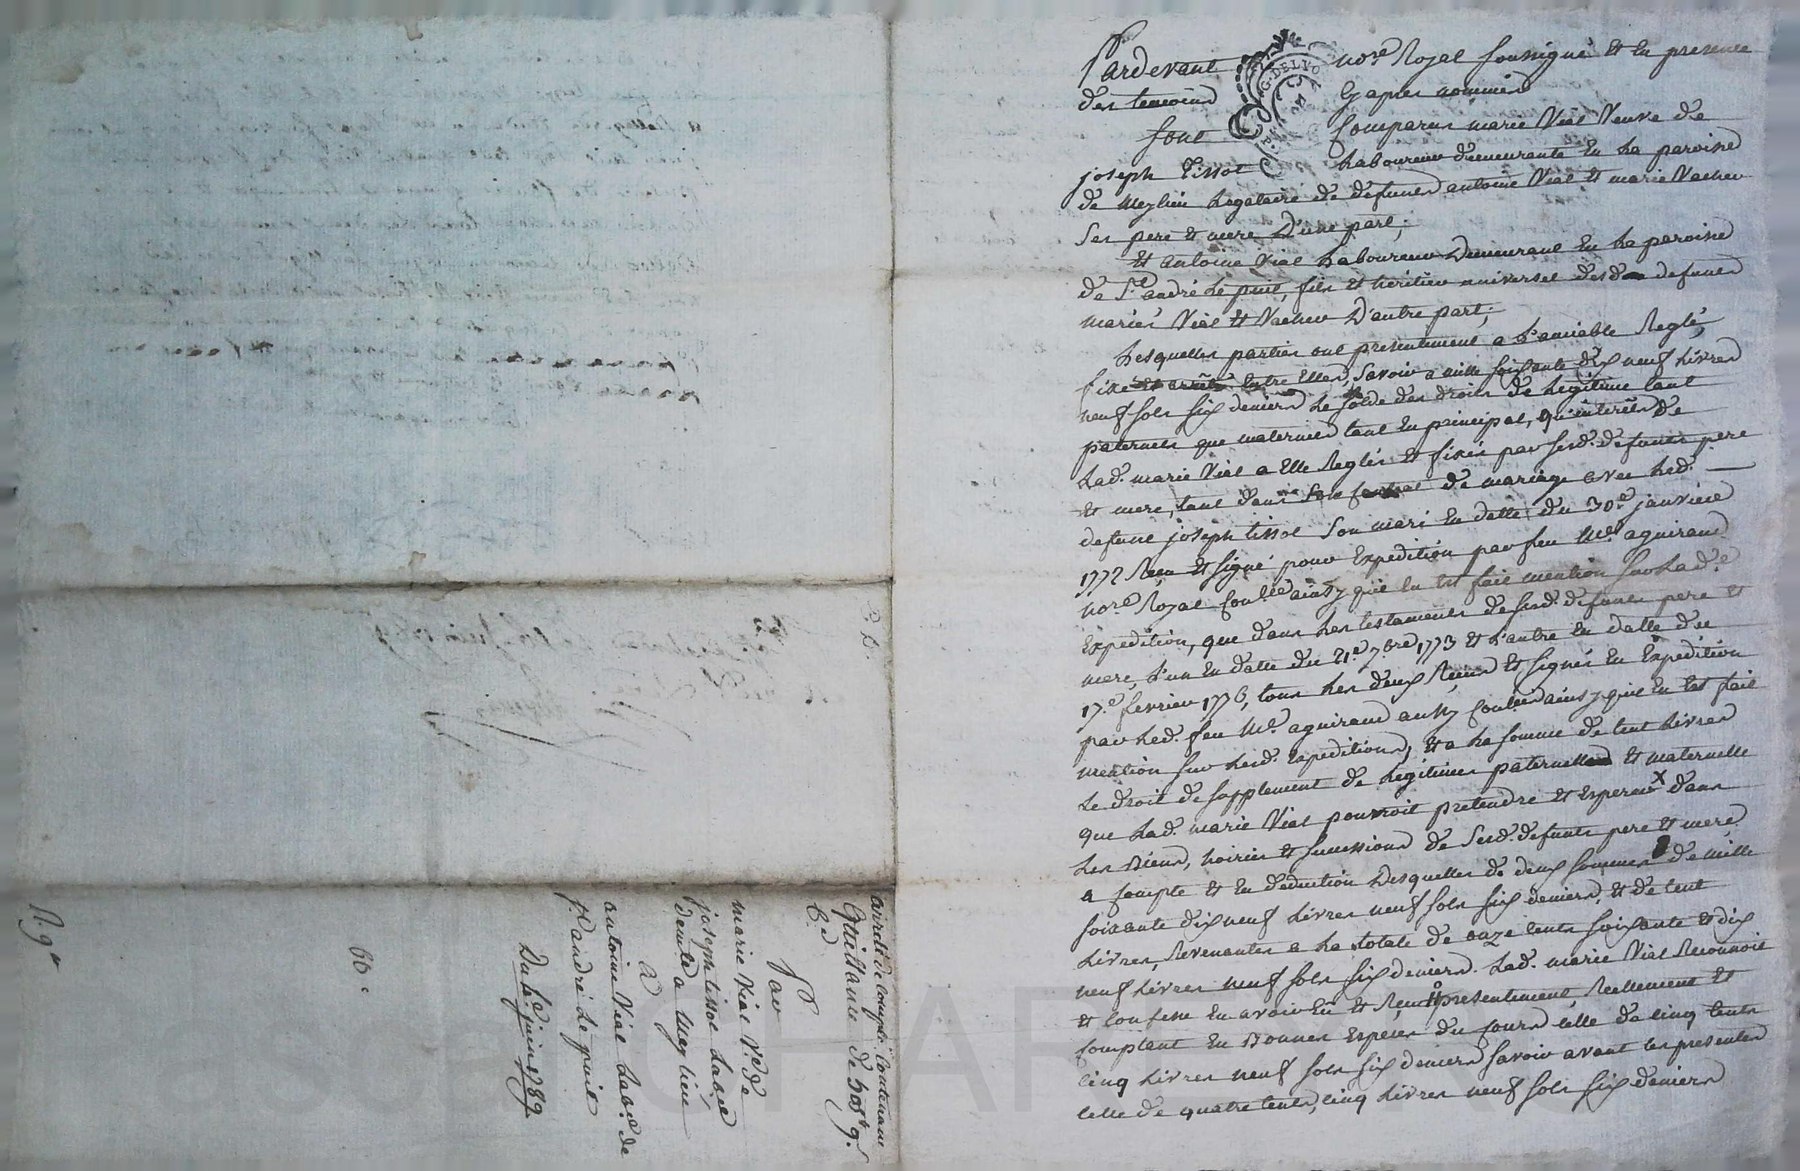 Pardevant nore Royal soussigné et en presence
des temoins cy apres nommés
sont comparus marie Vial Veuve de
joseph tissot Laboureur demeurante en la paroisse
de Meylieu Legataire de defunts antoine Vial et marie Vacher
ses pere et mere D'une part;
et antoine Vial Laboureur Demeurant en la paroisse
de St. andré le puit, fils et heritier universel desd. defunts
mariés Vial et Vacher D'autre part;
Lesquelles parties ont presentement a L'amiable Reglé,
fixé et arrêté entre Elles, savoir a mille soixante dix neuf Livres
neuf sols six deniers le solde des droits de Legitime tant
paternels que maternels tant en principal, qu'interêts de
Lad. marie Vial a Elle Reglés et fixés par sesd. defunts pere
et mere, tant dans son contrat de mariage avec led.
defunt joseph tissot son mari en datte du 30e janvier
1772 Reçu et signé pour Expedition par feu Me aguiraud
nore Royal ainsy qu'il en est fait mention sur Lad.e
Expedition, que dans les testaments de sesd. defunts pere et
mere, L'un en datte du 21e 7bre 1773 et L'autre en datte du
17e fevrier 1776, tous les deux Reçus et signés en Expedition
par led. feu Me. aguiraud aussy ainsy qu'il en est fait
mention sur lesd. Expeditions, et a la somme de cent Livres
le droit de supplement de Legitimes paternelle et maternelle
que Lad. marie Vial pourroit pretendre et esperer x dans
les Biens, hoiries et successions de sesd. defunts pere et mere
a compte et en deduction Desquelles de deux sommes de mille
soixante dix neuf Livres neuf sols six deniers, et de cent
Livres, Revenantes a la totale de onze cents soixante et dix
neuf Livres neuf sols six deniers. Lad. marie Vial Reconnoit
et confesse en avoir Eu et Reçu presentement, Reellement et
comptant en Bonnes Especes du cours celle de cinq cents
cinq Livres neuf sols six deniers savoir avant les presentes
celle de quatre cents cinq Livres neuf sols six deniers
arreté de compte contenant
Quittance de 505# 9s
6d
Par
marie Vial Ve de
joseph tissot Labr
demte a Meylieu
A
antoine Vial Labr de
St. andré le puit
Du juin 1789